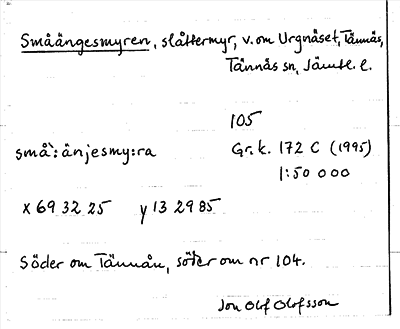 Småängesmyren, slåttermyr, v. om Urgnåset, Tännäs,
Tännäs sn, Jämtl. l.
105
små`:änjesmy:ra Gr. k. 172 C (1995)
1:50 000
x 69 32 25 y 13 29 85
Söder om Tännån, söder om nr 104.
Jon Olof Olofsson